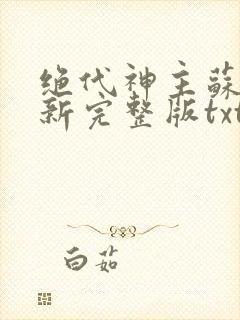 绝代神主蘇
新完整版txt
白茹